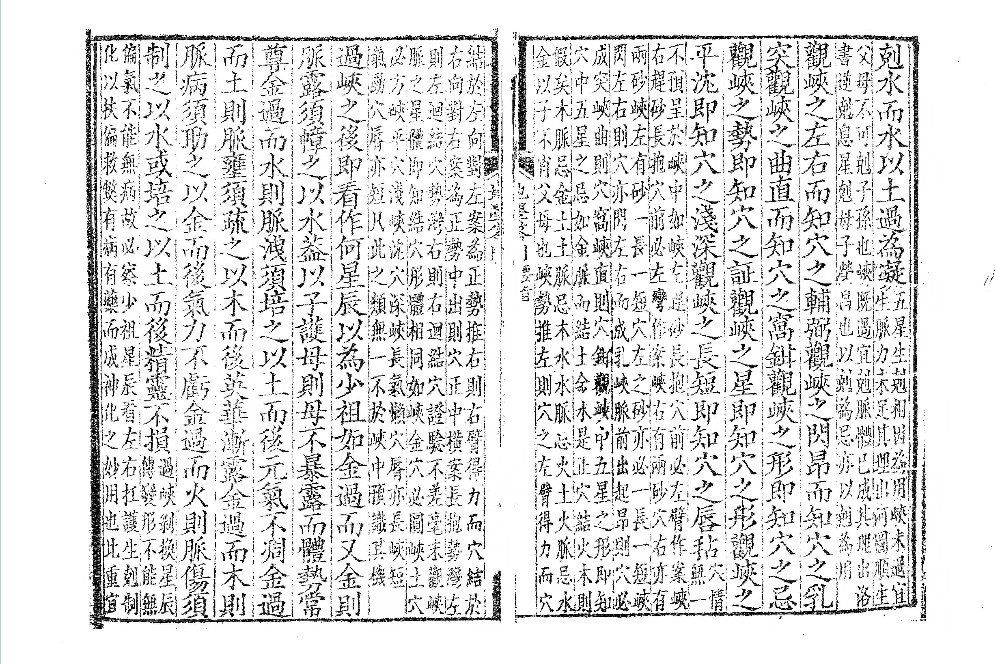 剋水而水以土過為凝五星生剋相因益用峽未過宜
生脈力未足其理出河圖順生
父母不可剋子孫也峽既過宜剋脈體已成其理出洛
書逓剋息星剋母子榮昌也以剋為忌亦以剋為用
觀峽之左右而知穴之輔弼觀峽之閃昂而知穴之乳
突觀峽之曲直而知穴之窩鉗觀峽之形即知穴之忌
觀峽之勢即知穴之証觀峽之星即知穴之形觀峽之
平沈即知穴之淺深觀峽之長短即知穴之唇毡穴情
無一
不預呈於峽中如峽左邊砂長抱穴前必左臂作案峽
右邊砂長抱穴前必左彎作案峽右有兩砂穴右亦有
兩砂峽左有砂一長一短穴左之砂亦必一長一短峽
閃左右則穴亦閃左右而成乳峽脈前出起昂則穴必
成突峽曲則穴窩峽直則穴鉗觀峽中五星之形即知
穴中五星之忌如金脈而結土金水是正穴結火木則
假矣木脈忌金土土脈忌木水水脈忌火土火脈忌水
金以子不宵父母也峽勢推左則穴之左臂得力而穴
結於左向對左案為正勢推右則右臂得力而穴結於
右向對右案為正勢中出則穴正中橫案長抱勢彎左
則左迴結穴勢灣右則右迴結穴證驗不爽毫末觀峽
脈之星體即知結穴形體相同如峽金穴必圓峽土穴
必方峽平穴淺峽沈穴深峽長氣懶穴唇亦長峽短
氣勁穴唇亦短凡此之類無一不於峽中預識其機
過峽之後即看作何星辰以為少祖如金過而又金則
脈露須幛之以水蓋以子護母則母不暴露而體勢常
尊金過而水則脈洩須培之以土而後元氣不凋金過
而土則脈壅須疏之以木而後英華漸露金過而木則
脈病須助之以金而後氣力不虧金過而火則脈傷須
制之以水或培之以土而後精靈不損過峽剝換星辰
傳變形不能無
偏氣不能無病故必察少祖星辰看左右扛護生剋制
化以扶偏救獘有病有藥而成神化之妙用也此重宣